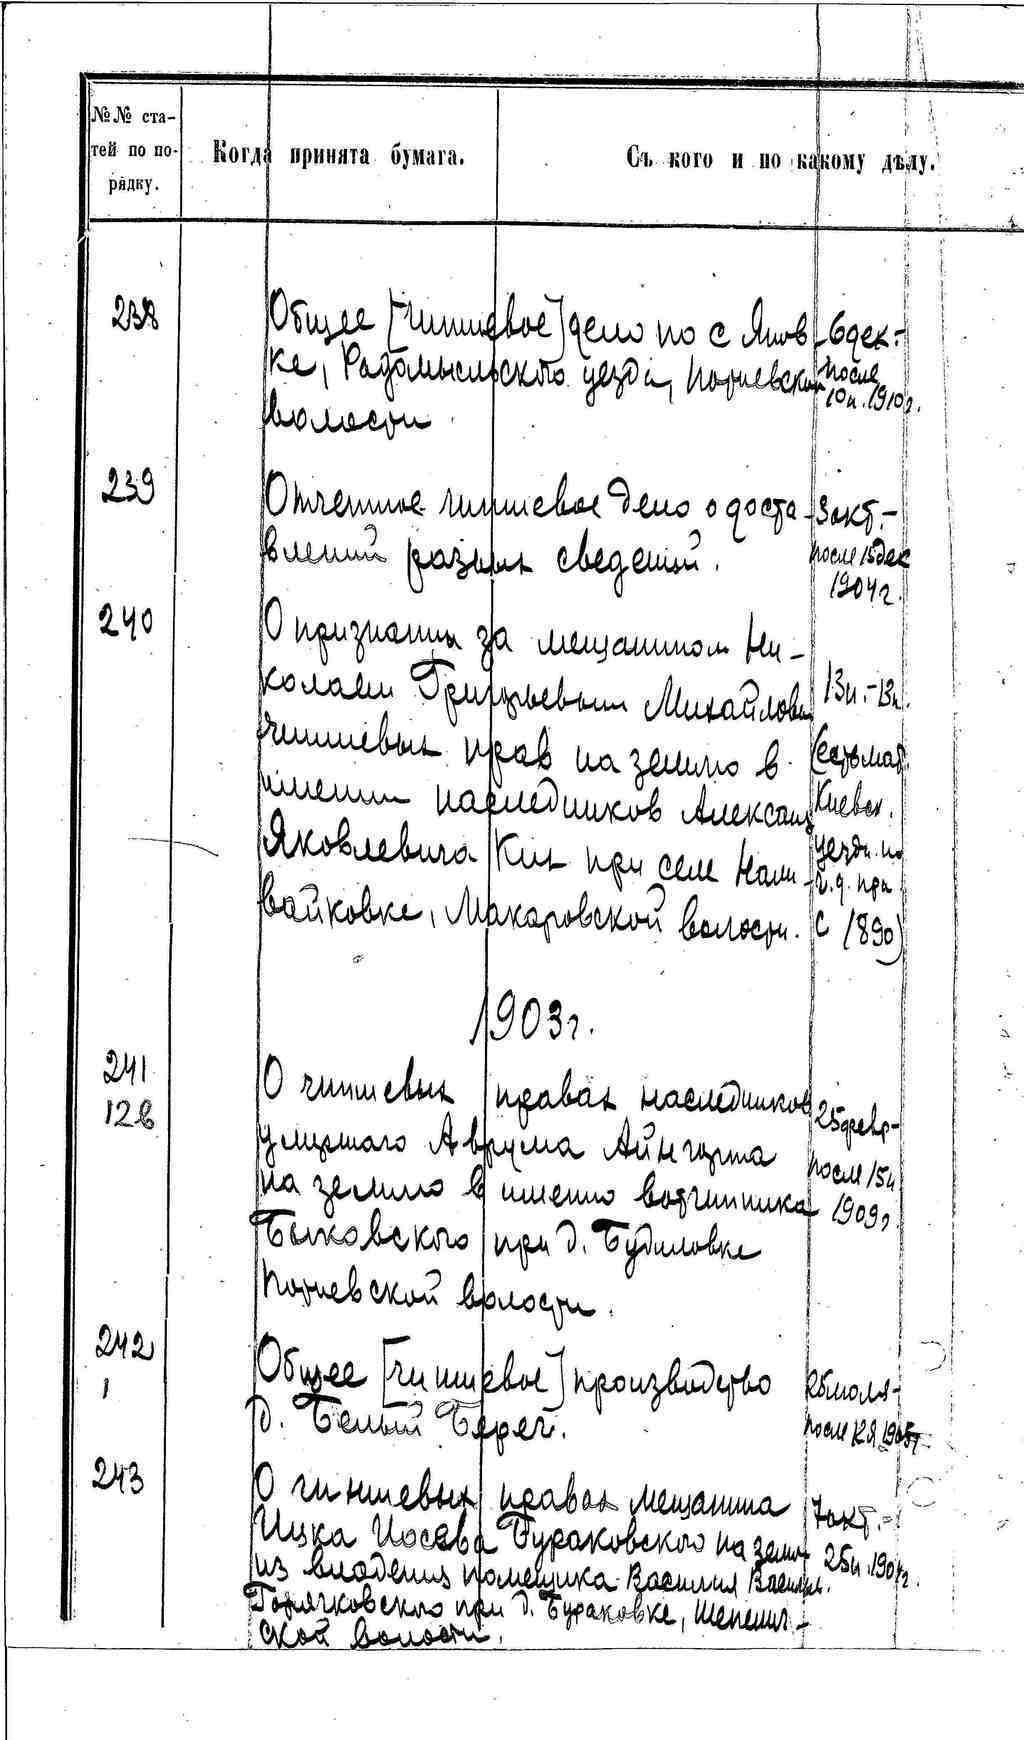 №№ ста-
тей по по-
рядку.
Когда принята бумага.
Съ кого и по какому дѣлу.
238
Общее [чиншевое] дело по с Янов-
ке, Радомысльского уезда, Потиевской
волости
6 дек.-
после
10 и. 1910 г.
239
Отчетное чиншевое дело о доста-
влении разных сведений.
3 окт.-
после 15 дек
1904 г.
240
О признании за мещанином Ни-
колаем Григорьевым Михайловым
чиншевых прав на землю в
имении наследников Александ
Яковлевича Ких при селе Нали-
вайковке, Макаровской волости.
13 и.-13 и.
(есть мат.
Киевск.
уезда по
ч.д. при
с 1890)
1903 г.
241
12 в
О чиншевых правах наследников
умершего Аврума Айнгорна
на землю в имении вотчинника
Быковского при д. Будиловке
Потиевской волости.
25 февр-
после 15 и
1909 г.
242
1
Общее [чиншевое] производство
д. Белый Берег.
26 июля-
после
243
О чиншевых правах мещанина
Ицка Иосева Бураковского на землю
из владения помещика Василия Васильев.
Горячковского при д. Бураковке, Шепелич-
ской волости.
7 окт.-
25 и. 1904 г.